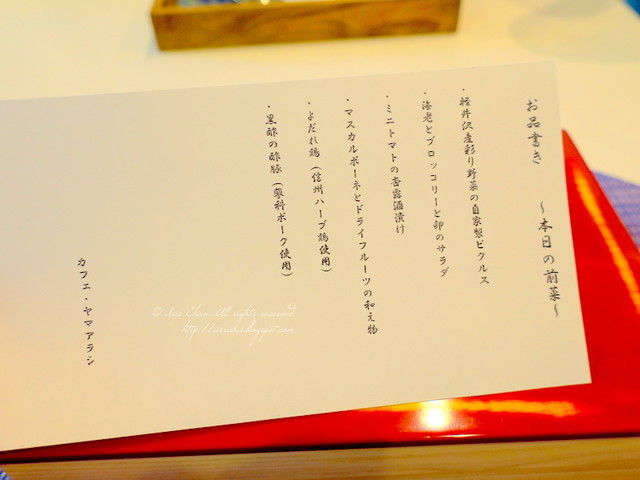 お品書き　～本日の前菜～
・軽井沢産彩り野菜の自家製ピクルス
・海老とブロッコリーと卵のサラダ
・ミニトマトの杏露酒漬け
・マスカルポーネとドライフルーツの和え物
・よだれ鶏（信州ハーブ鶏使用）
・黒酢の酢豚（蓼科ポーク使用）
カフェ・ヤマアラシ
All rights reserved